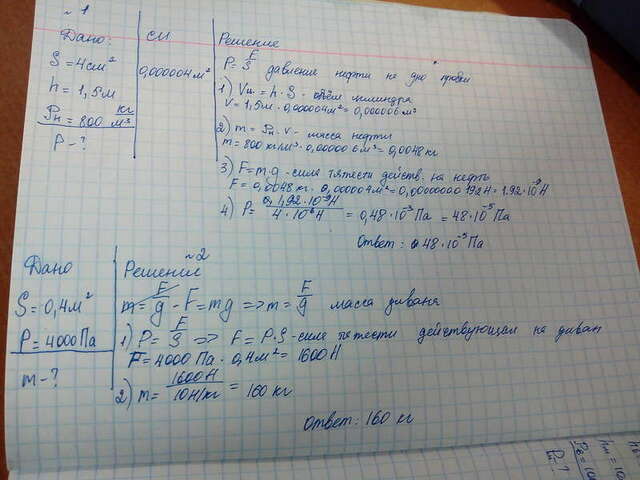 ~ 1
Дано:
СИ
Решение
S = 4 см²
0,000004 м²
P = F/S давление нефти на дно пробки
h = 1,5 м
1) Vц = h · S - объём цилиндра
V = 1,5 м · 0,000004 м² = 0,000006 м³
ρн = 800 кг/м³
2) m = ρн · V - масса нефти
m = 800 кг/м³ · 0,000006 м³ = 0,0048 кг
P - ?
3) F = m·g - сила тяжести действ. на нефть
F = 0,0048 кг · 0,00004 м² = 0,0000000 192 Н = 1.92·10⁻⁹ Н
4) P = 1,92·10⁻⁹ Н / 4·10⁻⁶ Н = 0,48·10⁻³ Па = 48·10⁻⁵ Па
Ответ: 48·10⁻⁵ Па
~ 2
Дано
Решение
S = 0,4 м²
m = F/g - F = mg => m = F/g масса дивана
P = 4000 Па
1) P = F/S => F = P·S - сила тяжести действующая на диван
F = 4000 Па · 0,4 м² = 1600 Н
m - ?
2) m = 1600 Н / 10 Н/кг = 160 кг
Ответ: 160 кг